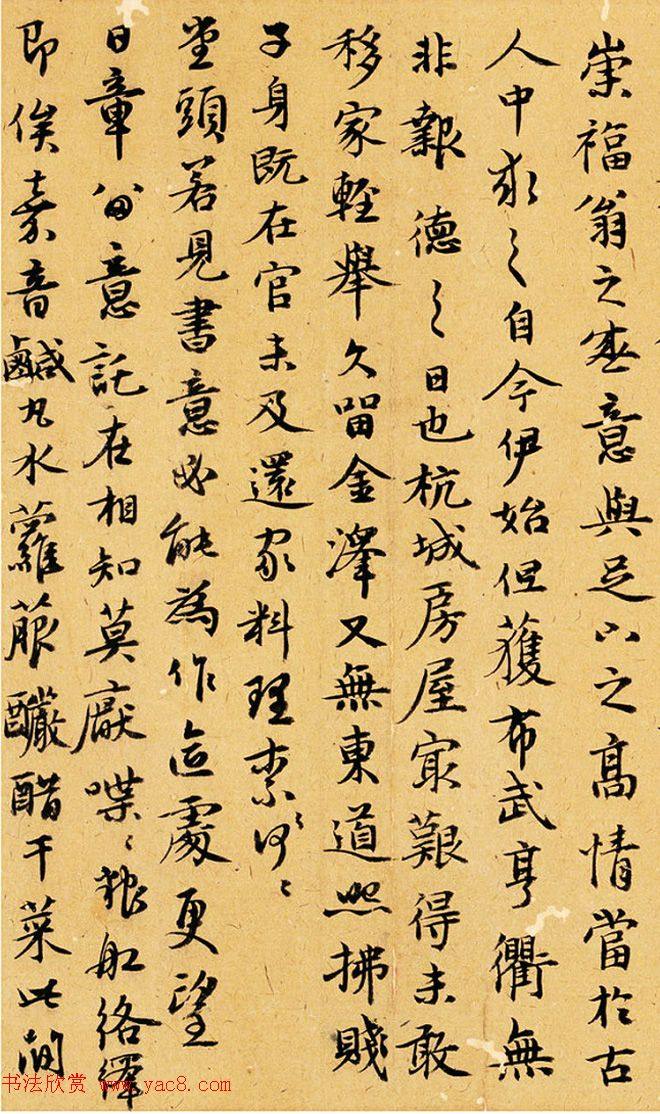 崇福翁之盛意與足下之高情當於古
人中求之求之自今伊始但獲布武亨衢無
非戴德之日也杭城房屋最艱得未敢
移家輕舉久留金澤又無東道照拂賤
子身既在官未及還家料理柰何柰何
堂頭若見書意必能為作區處更望
日章留意託在相知莫厭喋喋糧船絡繹
即俟嘉音鹹丸水蘿菔釅醋干菜此間
书法欣赏 www.yac8.com